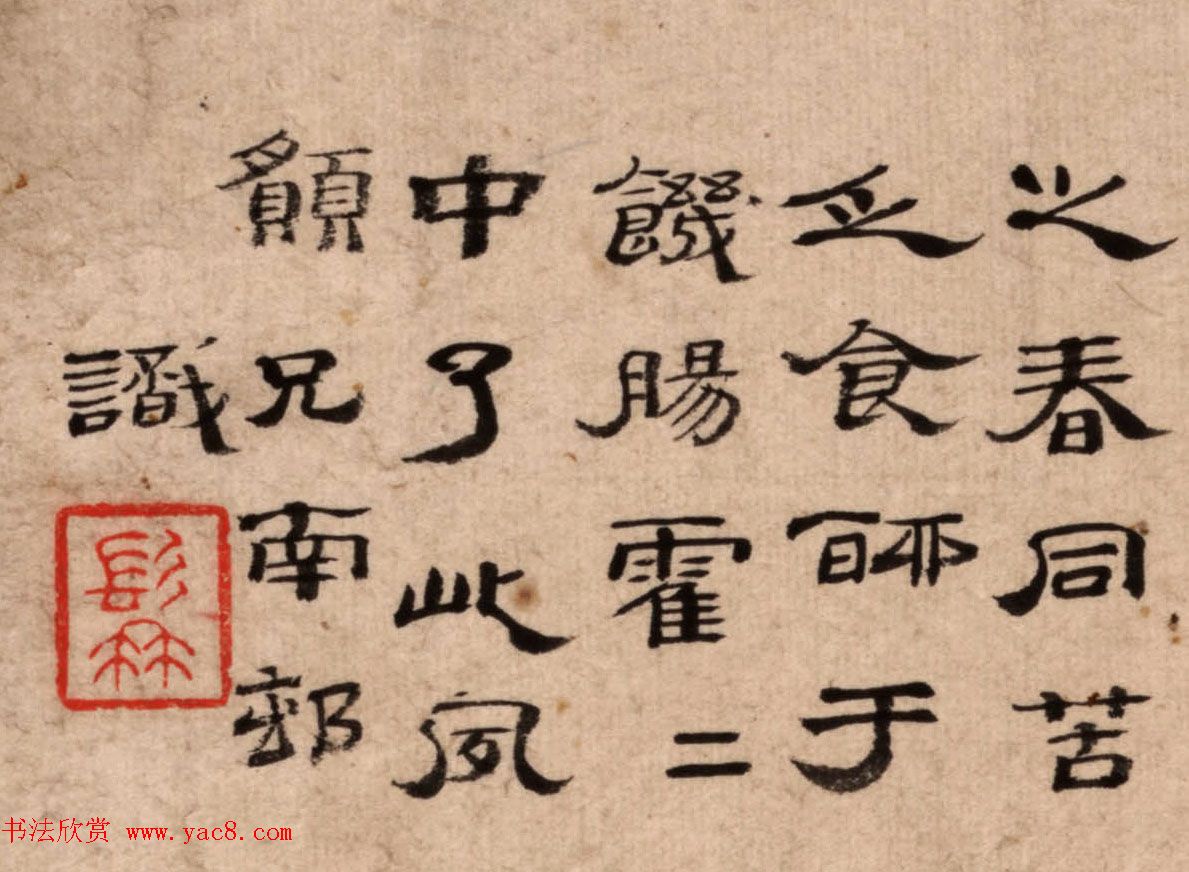 之春同苦
乏食聊于
饑腸霍二
中了此夙
願兄南郭
識
书法欣赏 www.yac8.com